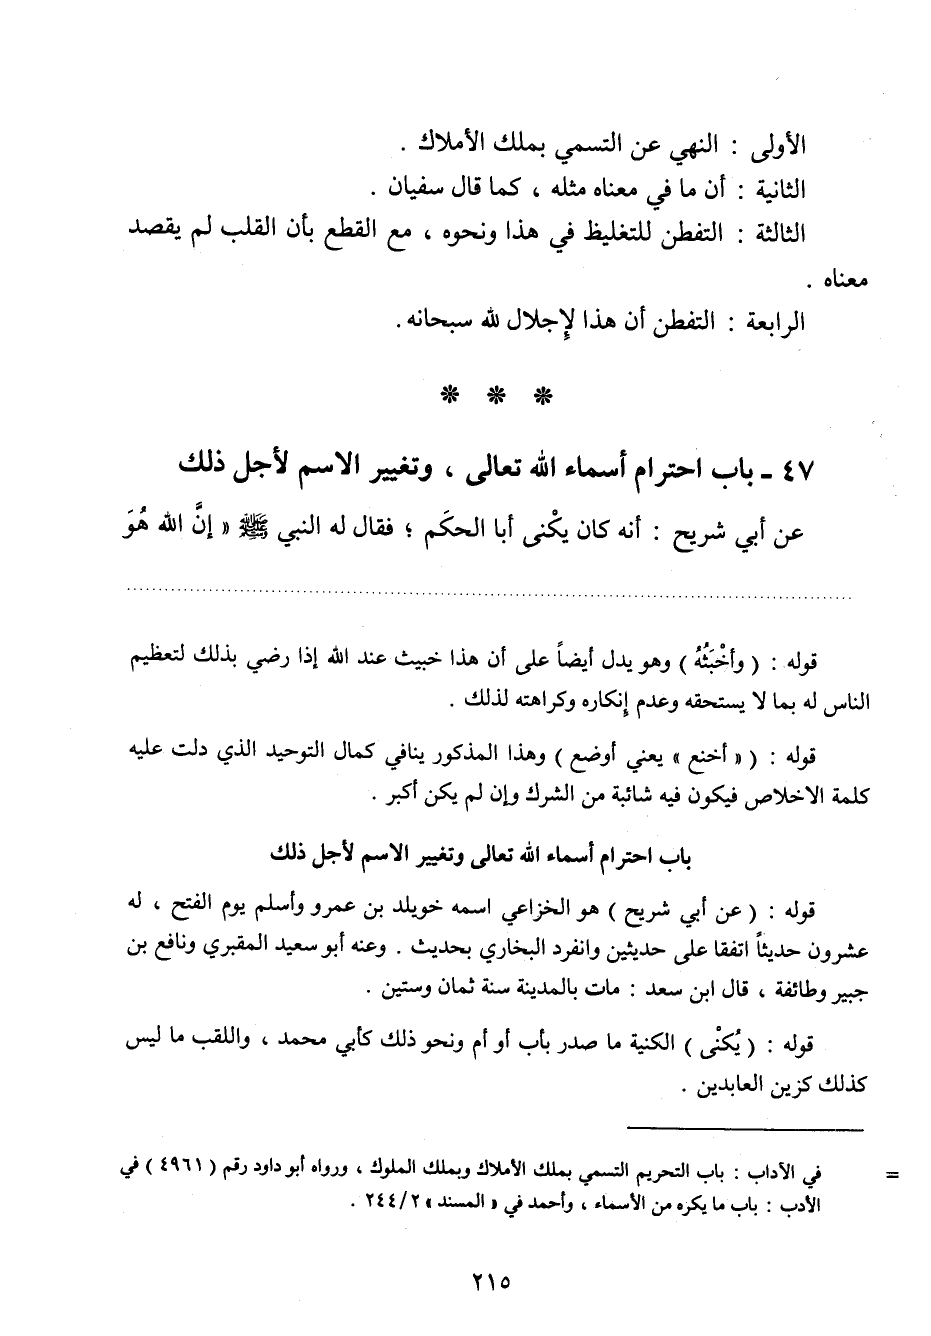 الأولى : النهي عن التسمي بملك الأملاك .
الثانية : أن ما في معناه مثله ، كما قال سفيان .
الثالثة : التفطن للتغليظ في هذا ونحوه ، مع القطع بأن القلب لم يقصد
معناه .
الرابعة : التفطن أن هذا لإجلال لله سبحانه.
* * *
٤٧ ـ باب احترام أسماء الله تعالى ، وتغيير الاسم لأجل ذلك
عن أبي شريح : أنه كان يكْنى أبا الحكَم ؛ فقال له النبي ﷺ « إنَّ الله هُوَ
قوله : ( وأخْبَثُهُ ) وهو يدل أيضاً على أن هذا خبيث عند الله إذا رضي بذلك لتعظيم
الناس له بما لا يستحقه وعدم إنكاره وكراهته لذلك .
قوله : ( « أخنع » يعني أوضع ) وهذا المذكور ينافي كمال التوحيد الذي دلت عليه
كلمة الاخلاص فيكون فيه شائبة من الشرك وإن لم يكن أكبر .
باب احترام أسماء الله تعالى وتغيير الاسم لأجل ذلك
قوله : ( عن أبي شريح ) هو الخزاعي اسمه خويلد بن عمرو وأسلم يوم الفتح ، له
عشرون حديثاً اتفقا على حديثين وانفرد البخاري بحديث . وعنه أبو سعيد المقبري ونافع بن
جبير وطائفة ، قال ابن سعد : مات بالمدينة سنة ثمان وستين .
قوله : ( يُكْنْى ) الكنية ما صدر بأب أو أم ونحو ذلك كأبي محمد ، واللقب ما ليس
كذلك كزين العابدين .
= في الآداب : باب التحريم التسمي بملك الأملاك وبملك الملوك ، ورواه أبو داود رقم ( ٤٩٦١ ) في
الأدب : باب ما يكره من الأسماء ، وأحمد في « المسند » ٢/ ٢٤٤ .
٢١٥